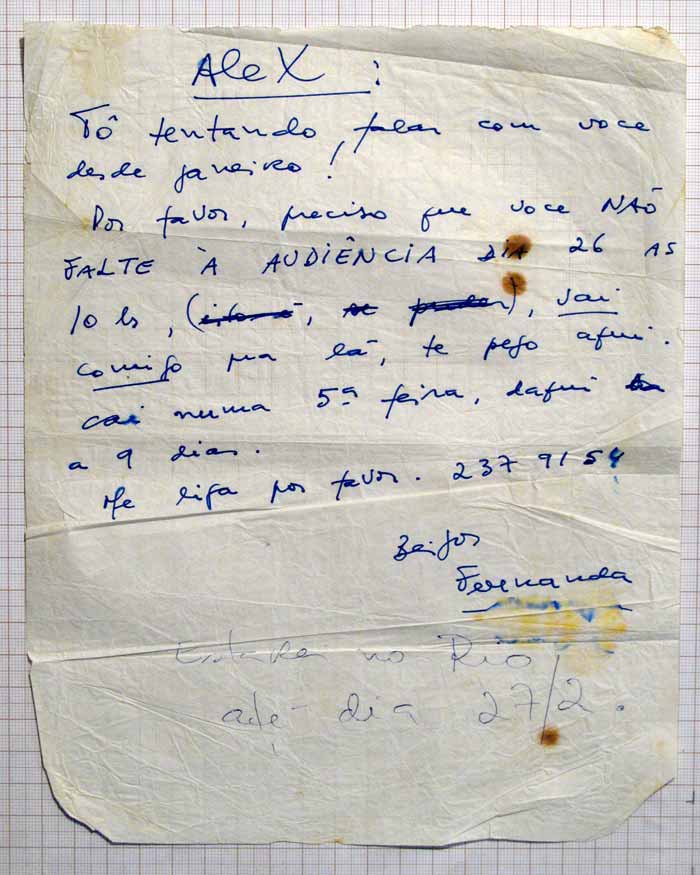 AleX :
Tô tentando falar com voce
desde janeiro !
Por favor, preciso que voce NÃO
FALTE À AUDIÊNCIA DIA 26 AS
10 hs, ( , se ), vai
comigo pra lá, te pego aqui.
cai numa 5ª feira, daqui
a 9 dias.
Me liga por favor. 237 91 54
Beijos
Fernanda
Estarei no Rio
até dia 27/2.